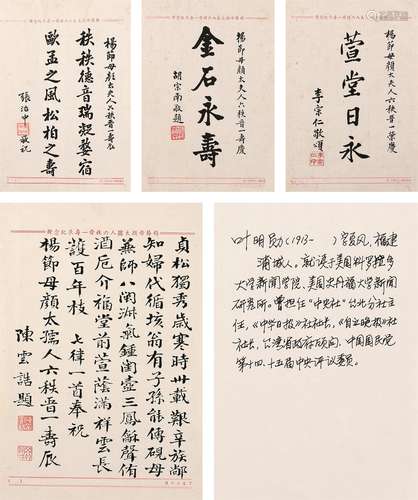 楊節母顏太夫人六秩晉一壽辰
秩秩德音瑞凝婺宿
歐孟之風松柏之壽
張治中敬祝
楊節母顏太夫人六秩晉一壽慶
金石永壽
胡宗南敬題
楊節母顏太夫人六秩晉一榮慶
萱堂日永
李宗仁敬頌
貞松獨秀歲寒時卅載艱辛族鄰
知婦代循垓翁有子孫能傳硯母
兼師八閩淑氣鍾閨壼三鳳穌聲侑
酒卮介福堂前萱蔭滿祥雲長
護百年枝 七律一首奉祝
楊節母顏太孺人六秩晉一壽辰
陳雲誥題
叶明勋(1913- )夏风,福建
浦城人。就读于美国科罗拉多
大学新闻学院、美国史丹福大学新闻
研究所。曾担任"中央社"台北分社主
任,《中华日报》社社长,《自立晚报》社
社长,台湾省政府顾问,中国国民党
第十四、十五届中央评议委员。